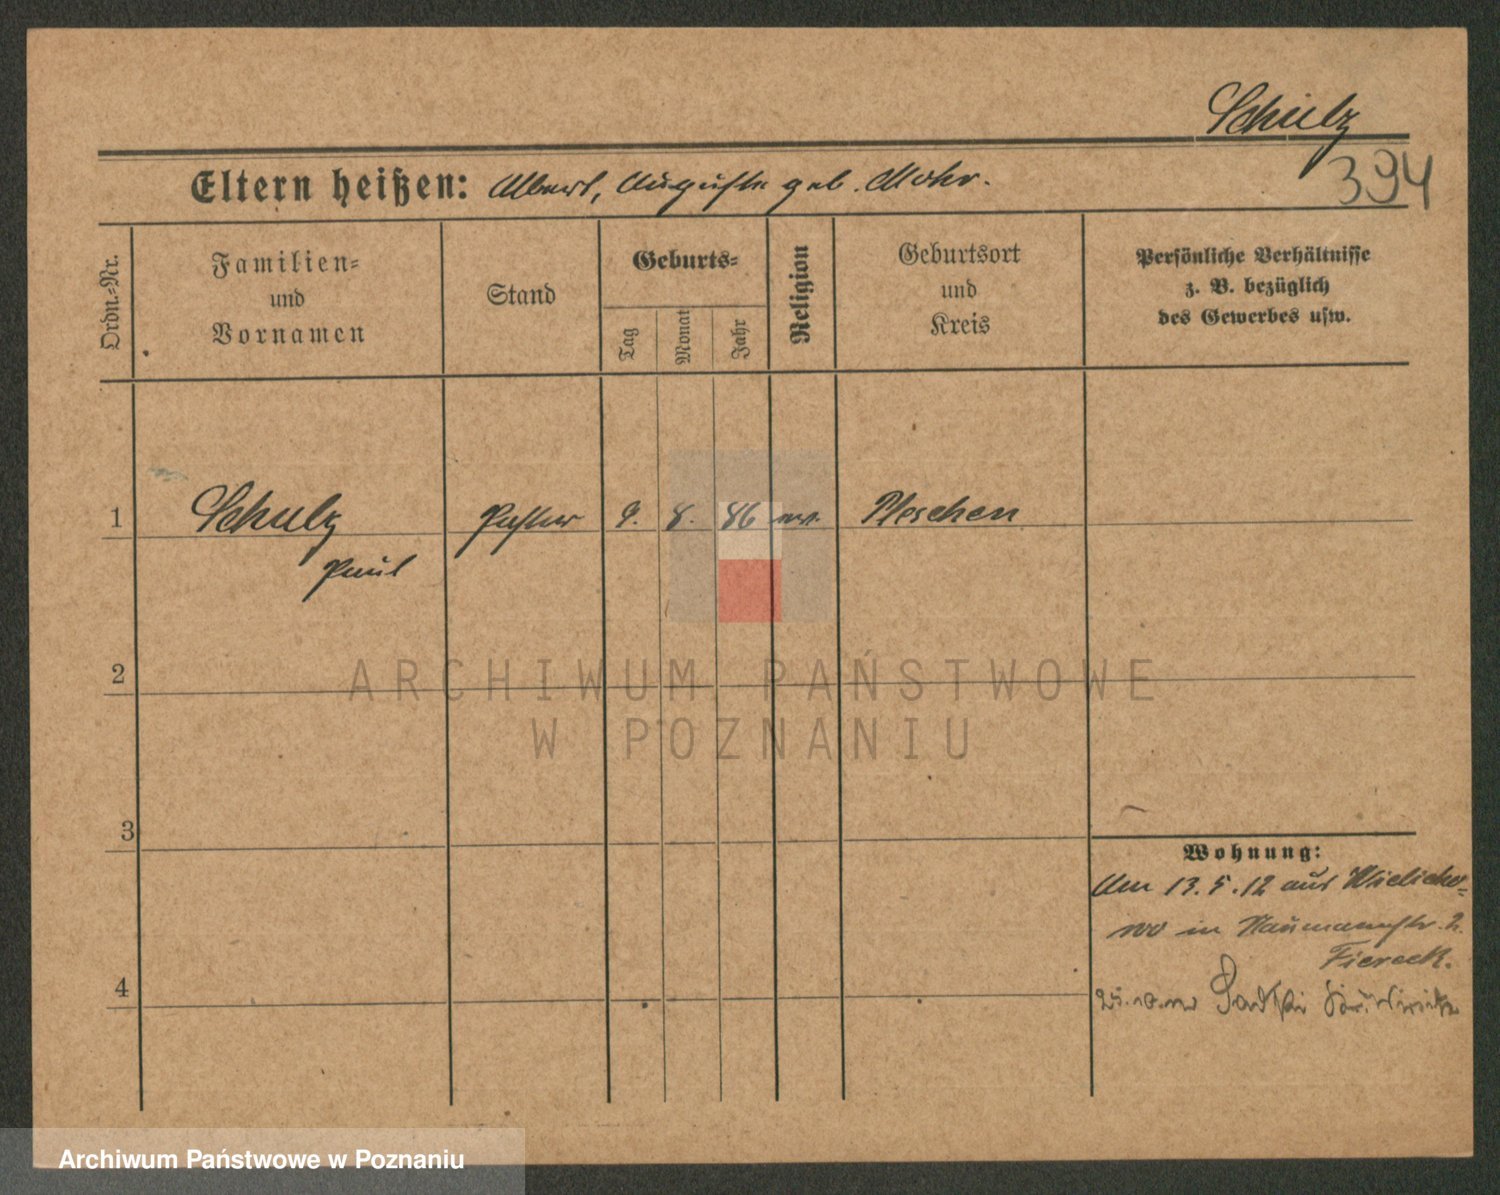 Schulz
394
Eltern heißen: Albert, Auguste geb. Mohr.
Ordn.-Nr.
Familien-
und
Vornamen
Stand
Geburts-
Tag
Monat
Jahr
Religion
Geburtsort
und
Kreis
Persönliche Verhältnisse
z. B. bezüglich
des Gewerbes usw.
1
Schulz
Paul
Pastor
9.
8.
86
ev.
Pleschen
2
ARCHIWUM PAŃSTWOWE
W POZNANIU
3
Wohnung:
Am 13.5.12 aus Wielicho-
wo in Naumannstr. 2.
Fiereck.
4
Archiwum Państwowe w Poznaniu